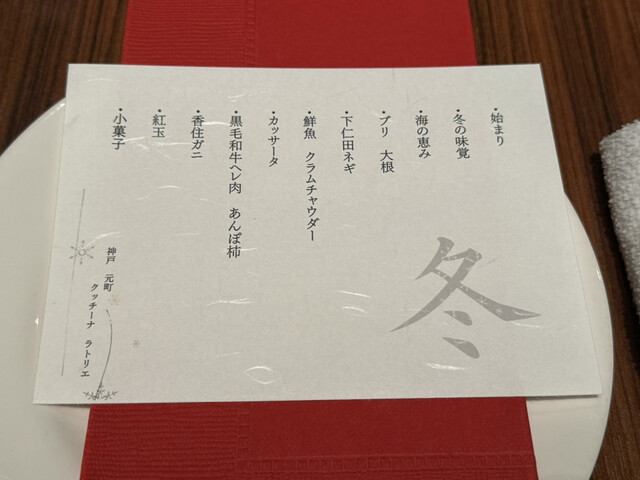 ・始まり
・冬の味覚
・海の恵み
・ブリ　大根
・下仁田ネギ
・鮮魚　クラムチャウダー
・カッサータ
・黒毛和牛ヘレ肉　あんぽ柿
・香住ガニ
・紅玉
・小菓子
冬
神戸　元町
クッチーナ　ラトリエ